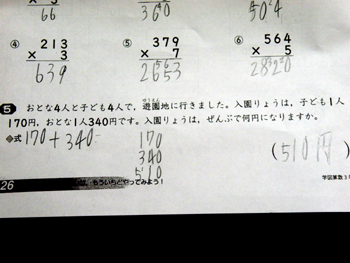 66 3640 504
④ 213 ⑤ 379 ⑥ 564
× 3 × 7 × 5
639 2653 2820
5 おとな4人と子ども4人で，遊園地に行きました。入園りょうは，子ども1人
170円，おとな1人340円です。入園りょうは，ぜんぶで何円になりますか。
式 170+340 170
340
510
(510円)
26 もういちどやってみよう！ 学図算数3